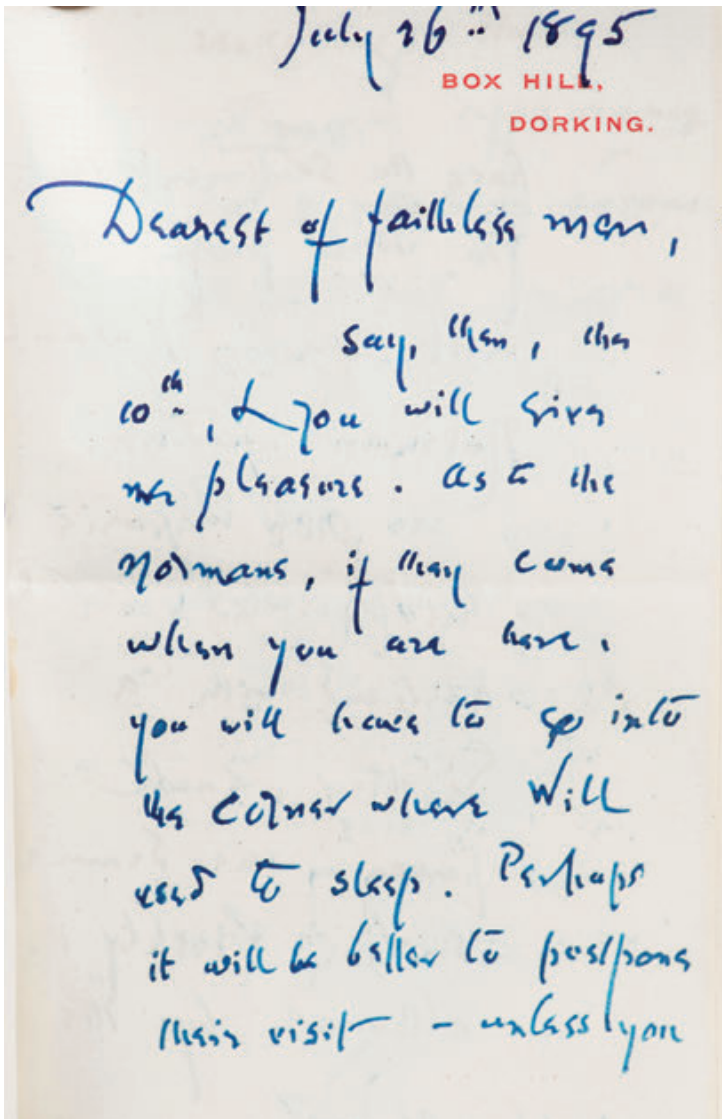 July 26th 1895
BOX HILL,
DORKING.
Dearest of faithless men,
Say, then, the
10th, & you will give
me pleasure. As to the
Normans, if they come
when you are here,
you will have to go into
the corner where Will
used to sleep. Perhaps
it will be better to postpone
their visit – unless you